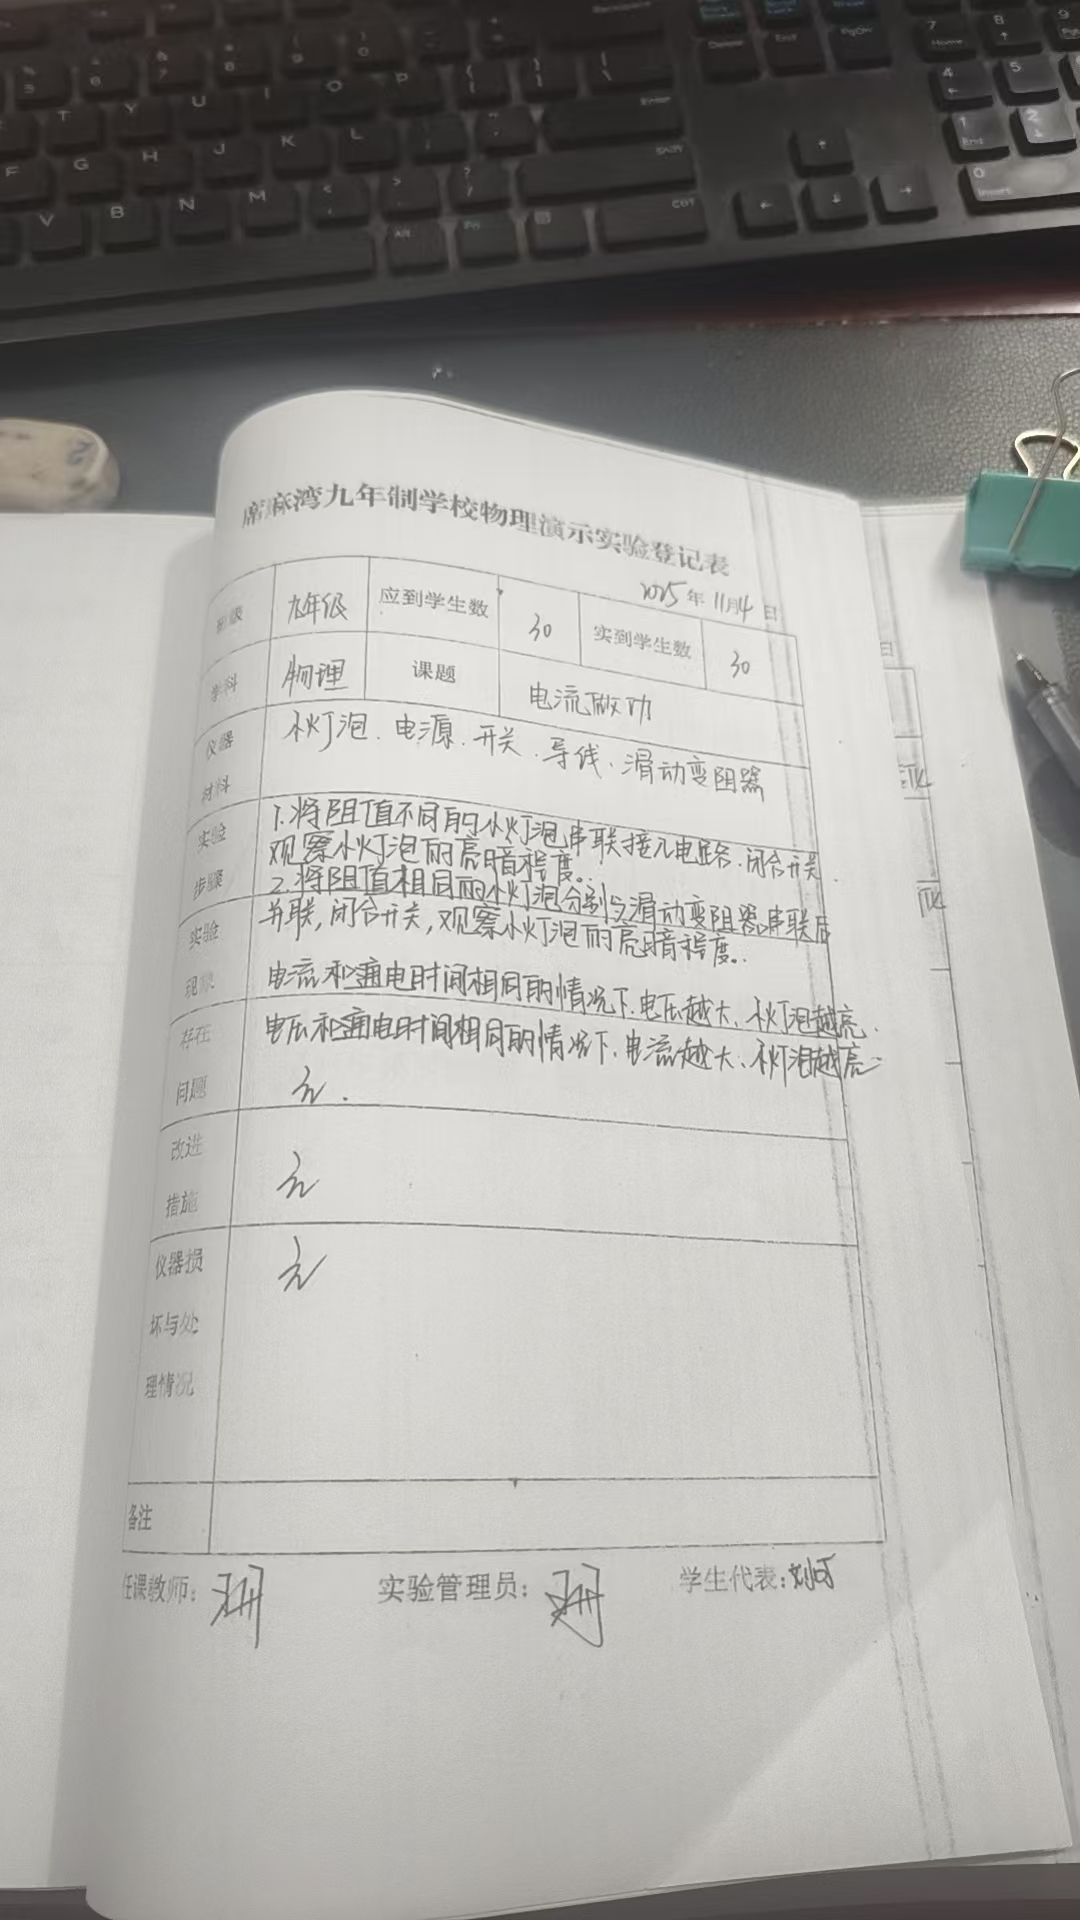 席麻湾九年制学校物理演示实验登记表
2025年11月4日
班级 九年级 应到学生数 30 实到学生数 30
学科 物理 课题 电流做功
仪器材料 小灯泡、电源、开关、导线、滑动变阻器
实验步骤 1.将阻值不同的小灯泡串联接入电路、闭合开关.
观察小灯泡的亮暗程度。
2.将阻值相同的小灯泡分别与滑动变阻器串联后
并联,闭合开关,观察小灯泡的亮暗程度。
实验现象 电流和通电时间相同的情况下、电压越大、小灯泡越亮.
电压和通电时间相同的情况下、电流越大、小灯泡越亮.
存在问题 无.
改进措施 无
仪器损坏与处理情况 无
备注
任课教师: 实验管理员: 学生代表:
Delete End PgDn
7 Home 8 9
4 5
1 End 2
0 Insert
T Y U I O P
F G H J K L Enter
V B N M Shift
Alt Fn Ctrl